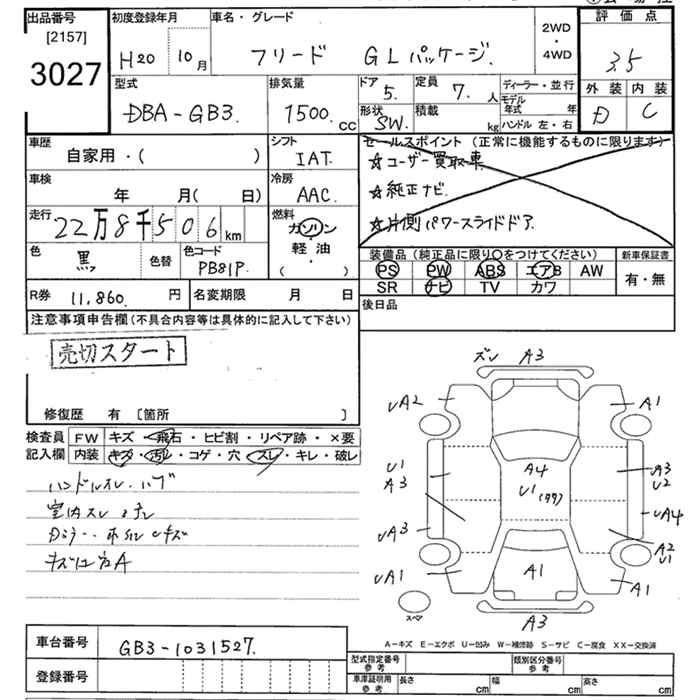 出品番号
[2157]
3027
初度登録年月
H20 10月
車名・グレード
フリード GLパッケージ.
2WD
・
4WD
評価点
3.5
外装 内装
D C
型式
DBA-GB3.
排気量
1500. cc
ドア
5.
定員
7. 人
形状
SW.
積載
kg
ディーラー・並行
モデル年式 年
ハンドル 左・右
車歴
自家用・( )
シフト
IAT.
車検
年 月( 日)
冷房
AAC.
走行
22万8千506km
燃料
ガソリン
・
軽油
( )
色
黒
色替
色コード
PB81P.
R券 11,860. 円
名変期限 月 日
セールスポイント (正常に機能するものに限ります)
☆ユーザー買取車
☆純正ナビ.
☆片側パワースライドドア.
装備品 (純正品に限り○をつけてください)
PS PW ABS エアB AW
SR ナビ TV カワ
新車保証書
有・無
後日品
注意事項申告欄 (不具合内容等は具体的に記入して下さい)
売切スタート
修復歴 有 [箇所 ]
検査員記入欄
FW キズ・飛石・ヒビ割・リペア跡・×要
内装 キズ・汚レ・コゲ・穴・スレ・キレ・破レ
ハンドルスレ・ハゲ
キズ凹左A
ズレ A3
UA2 A1
U1
A3
A4
U1
A3
U2
UA4
UA3
A2
U1
UA1
A1
A1
スペア
A3
A－キズ E－エクボ U－凹み W－補修跡 S－サビ C－腐食 XX－交換済
車台番号
GB3-1031527.
登録番号
型式指定番号
参考
類別区分番号
参考
車庫証明用
参考
長さ cm
幅 cm
高さ cm